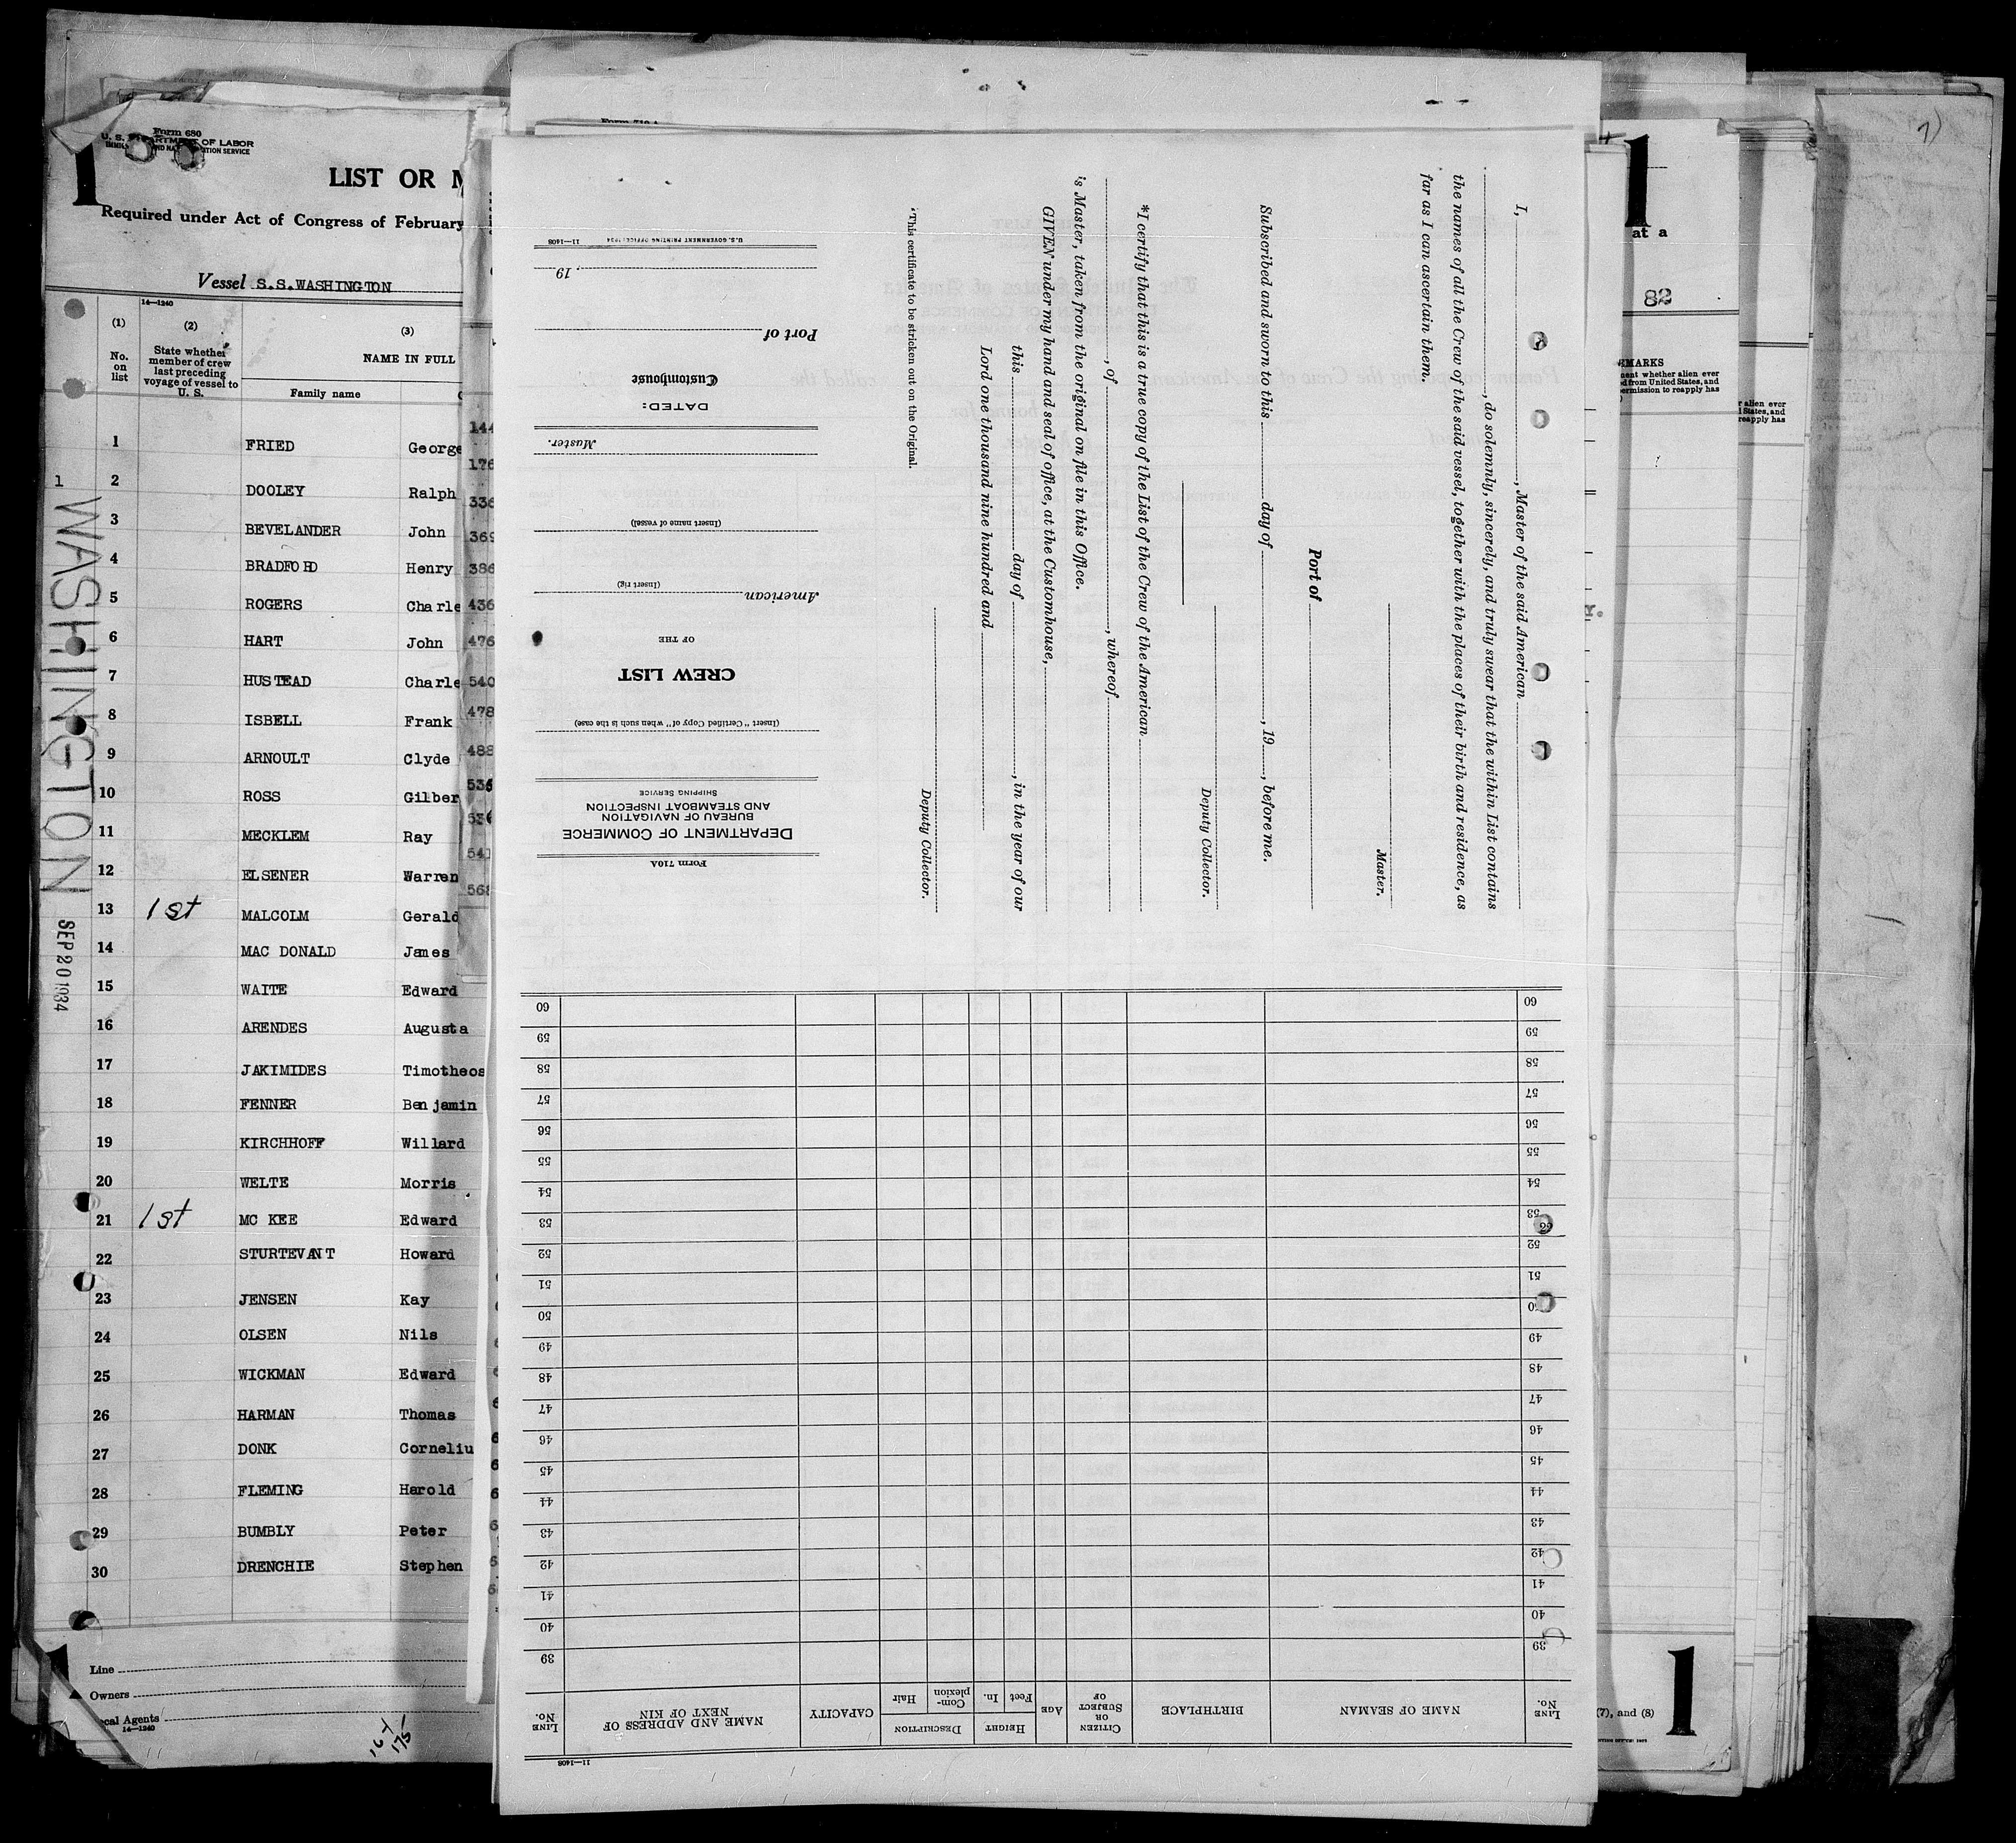 1
Form 680
U. S. DEPARTMENT OF LABOR
LIST OR
Required under Act of Congress of February
Vessel S.S.WASHINGTON
14—1240
(1) (2) (3)
No. on list
State whether member of crew last preceding voyage of vessel to U. S.
NAME IN FULL
Family name
1 FRIED George
2 DOOLEY Ralph
3 BEVELANDER John
4 BRADFO RD Henry
5 ROGERS Charle
6 HART John
7 HUSTEAD Charle
8 ISBELL Frank
9 ARNOULT Clyde
10 ROSS Gilber
11 MECKLEM Ray
12 ELSENER Warren
13 1st MALCOLM Gerald
14 MAC DONALD James
15 WAITE Edward
16 ARENDES Augusta
17 JAKIMIDES Timotheos
18 FENNER Benjamin
19 KIRCHHOFF Willard
20 WELTE Morris
21 1st MC KEE Edward
22 STURTEVANT Howard
23 JENSEN Kay
24 OLSEN Nils
25 WICKMAN Edward
26 HARMAN Thomas
27 DONK Corneliu
28 FLEMING Harold
29 BUMBLY Peter
30 DRENCHIE Stephen
Line
Owners
cal Agents
14—1240
1
WASHINGTON
SEP 20 1934
144
176
336
369
386
436
476
540
478
488
536
536
541
568
Form 710A
DEPARTMENT OF COMMERCE
BUREAU OF NAVIGATION
AND STEAMBOAT INSPECTION
SHIPPING SERVICE
(Insert "Certified Copy of" when such is the case)
CREW LIST
OF THE
American
(Insert rig)
(Insert name of vessel)
Master.
DATED:
Customhouse
Port of
, 19
U.S. GOVERNMENT PRINTING OFFICE: 1934 11—1408
I, , Master of the said American
, do solemnly, sincerely, and truly swear that the within List contains
the names of all the Crew of the said vessel, together with the places of their birth and residence, as
far as I can ascertain them.
Master.
Port of
Subscribed and sworn to this day of , 19 , before me.
Deputy Collector.
*I certify that this is a true copy of the List of the Crew of the American
, of , whereof
is Master, taken from the original on file in this Office.
GIVEN under my hand and seal of office, at the Customhouse,
this day of , in the year of our
Lord one thousand nine hundred and
Deputy Collector.
*This certificate to be stricken out on the Original.
11—1408
LINE No.
NAME OF SEAMAN
BIRTHPLACE
CITIZEN OR SUBJECT OF
AGE
HEIGHT
Feet In.
DESCRIPTION
Complexion Hair
CAPACITY
NAME AND ADDRESS OF NEXT OF KIN
LINE No.
39 39
40 40
41 41
42 42
43 43
44 44
45 45
46 46
47 47
48 48
49 49
50 50
51 51
52 52
53 53
54 54
55 55
56 56
57 57
58 58
59 59
60 60
1
at a
82
MARKS
ent whether alien ever
d from United States, and
ermission to reapply has
r alien ever
l States, and
reapply has
(7), and (8)
1